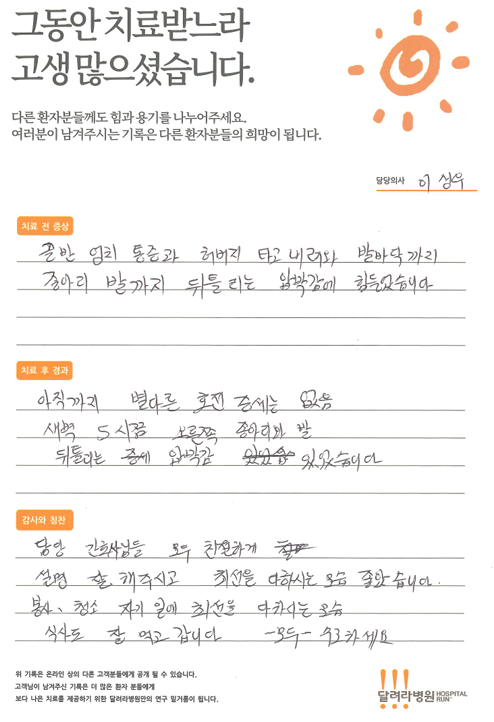 그동안 치료받느라
고생 많으셨습니다.
다른 환자분들께도 힘과 용기를 나누어주세요.
여러분이 남겨주시는 기록은 다른 환자분들의 희망이 됩니다.
담당의사 이 성우
치료 전 증상
골반 엄치 통증과 허벅지 타고 내려와 발바닥까지
종아리 발까지 뒤틀리는 압박감에 힘들었습니다
치료 후 경과
아직까지 별다른 호전 증세는 없음
새벽 5시쯤 오른쪽 종아리와 발
뒤틀리는 증세 압박감 있었습니다
감사와 칭찬
담당 간호사님들 모두 친절하게
설명 잘 해주시고 최선을 다하시는 모습 좋았습니다.
봉사, 청소 자기 일에 최선을 다하시는 모습
식사도 잘 먹고 갑니다 -모두- 수고하세요
위 기록은 온라인 상의 다른 고객분들에게 공개 될 수 있습니다.
고객님이 남겨주신 기록은 더 많은 환자 분들에게
보다 나은 치료를 제공하기 위한 달려라병원만의 연구 밑거름이 됩니다.
달려라병원 HOSPITAL RUN